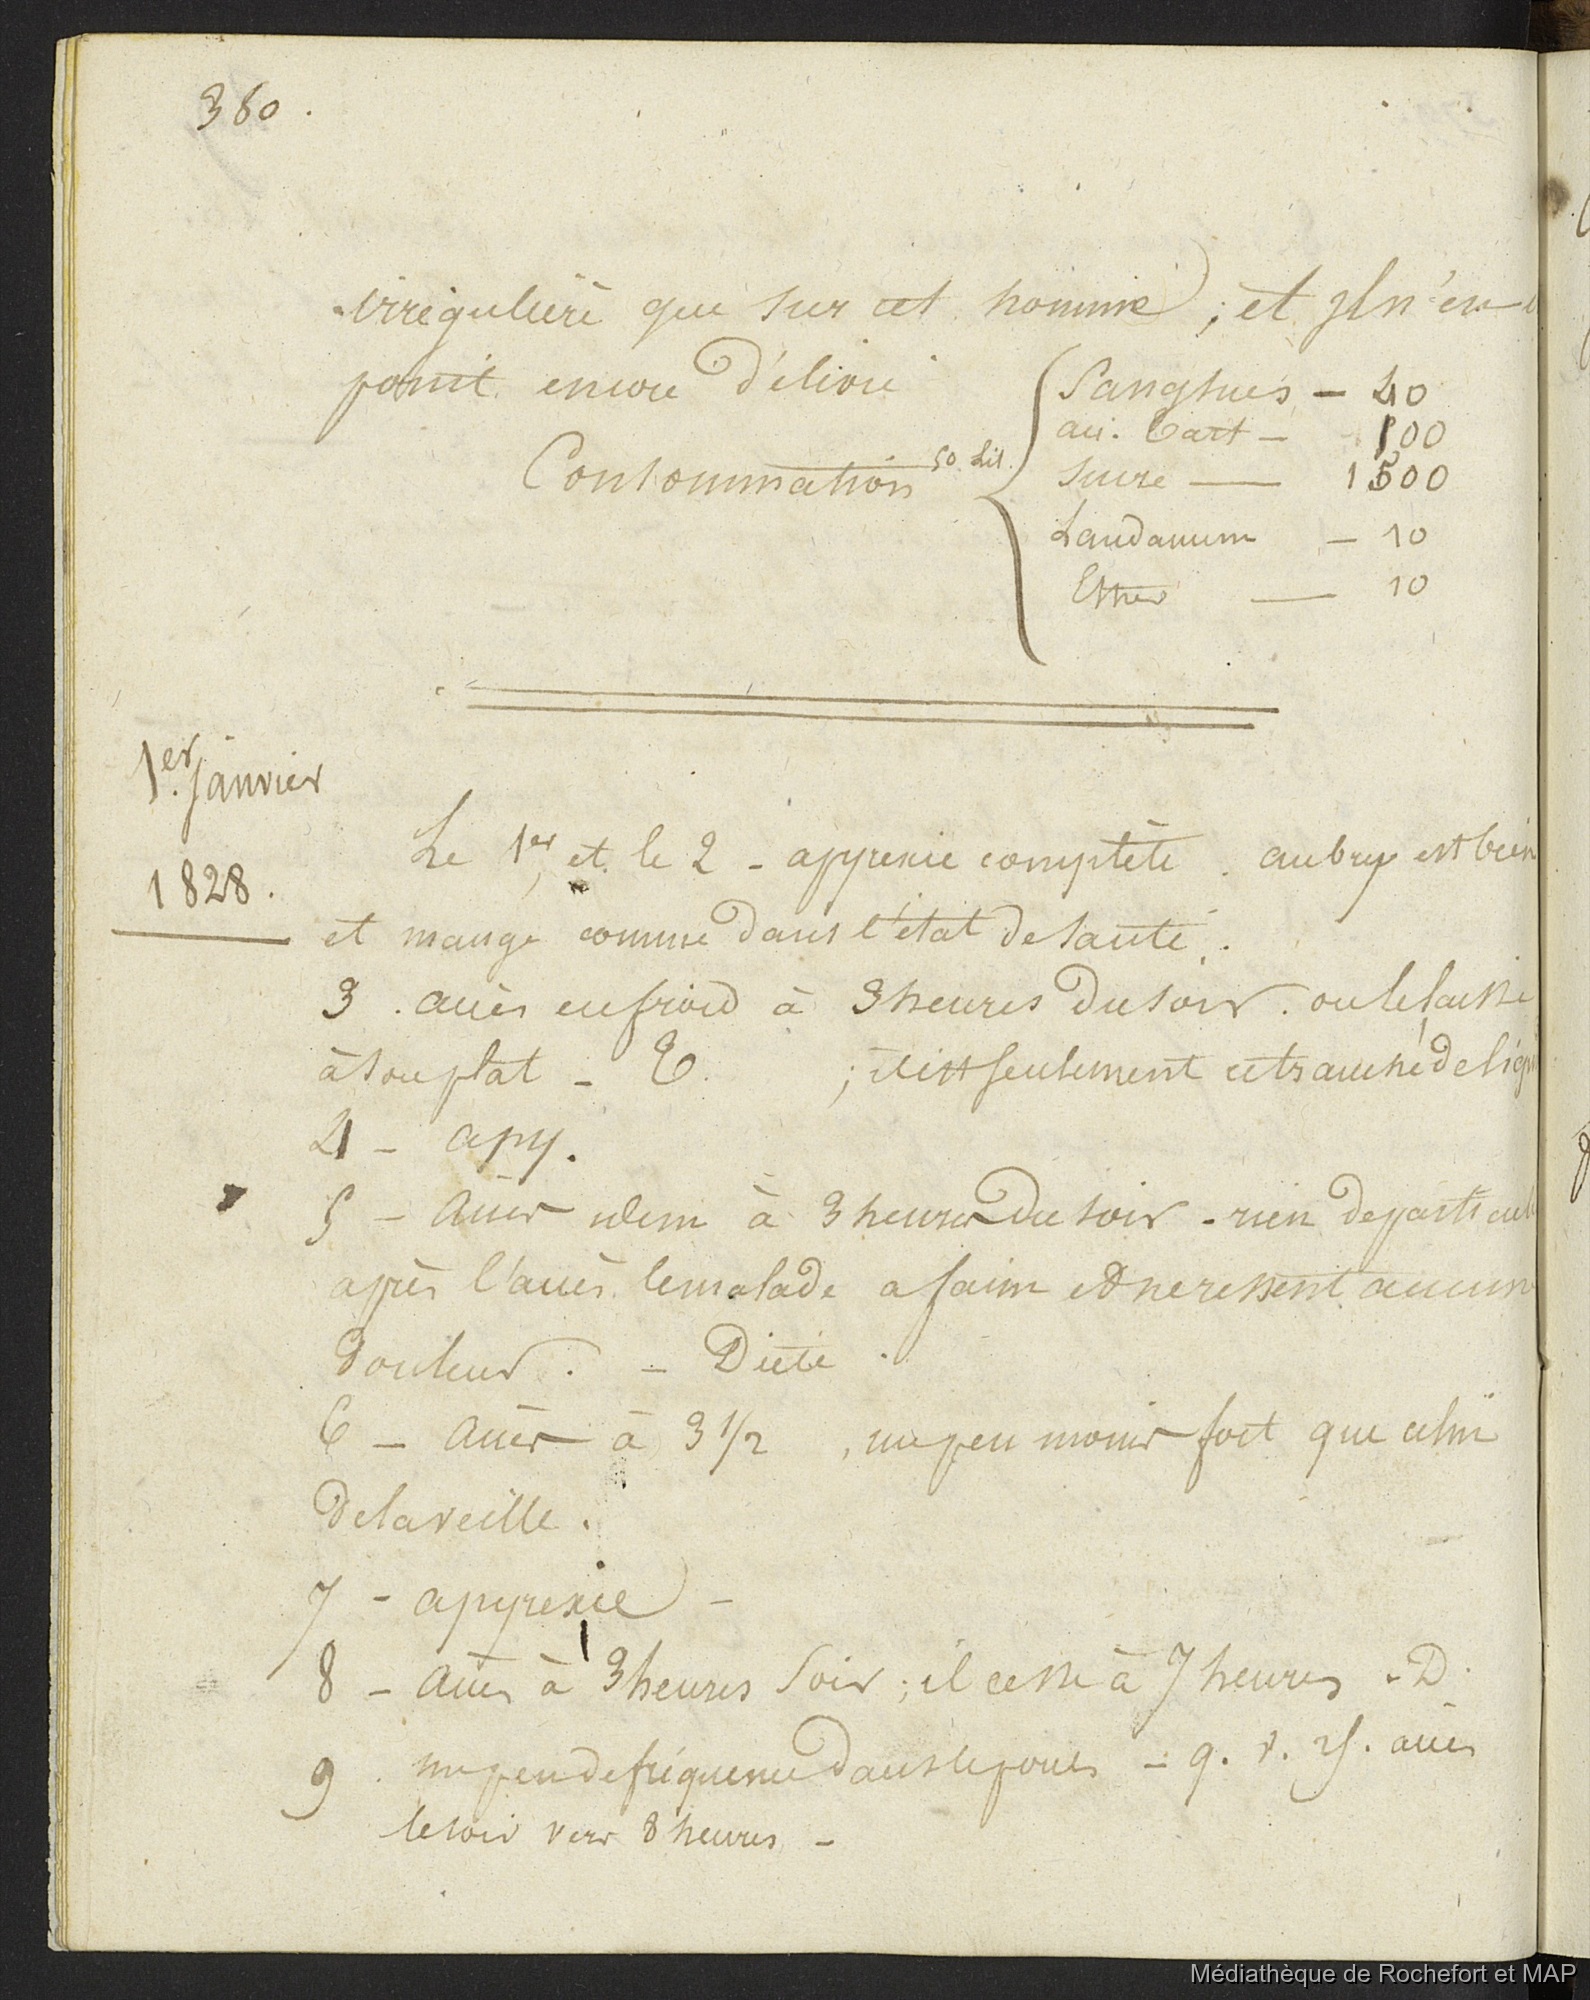 360.
irrégulière que sur cet homme ; et il n'en
point encore délivré
Consommation 50 lit.
Sangsues — 40
aci. tart — 100
sucre — 1500
Laudanum — 10
Ether — 10
1er janvier
1828.
Le 1er, et le 2 - apyrexie complète. aubry est bien
et mange comme dans l'état de santé.
3. accès en froid à 3 heures du soir. on le laisse
à son plat - ; il est seulement retranché de
4 - apy.
5 - accès idem à 3 heures du soir - rien de particul
après l'accès le malade a faim et ne ressent aucune
douleur. - Diète.
6 - accès à 3 1/2, un peu moins fort que celui
de la veille.
7 - apyrexie -
8 - accès à 3 heures soir ; il cesse à 7 heures - D.
9. un peu de fréquence dans le pouls - q. accès
le soir vers 8 heures -
Médiathèque de Rochefort et MAP